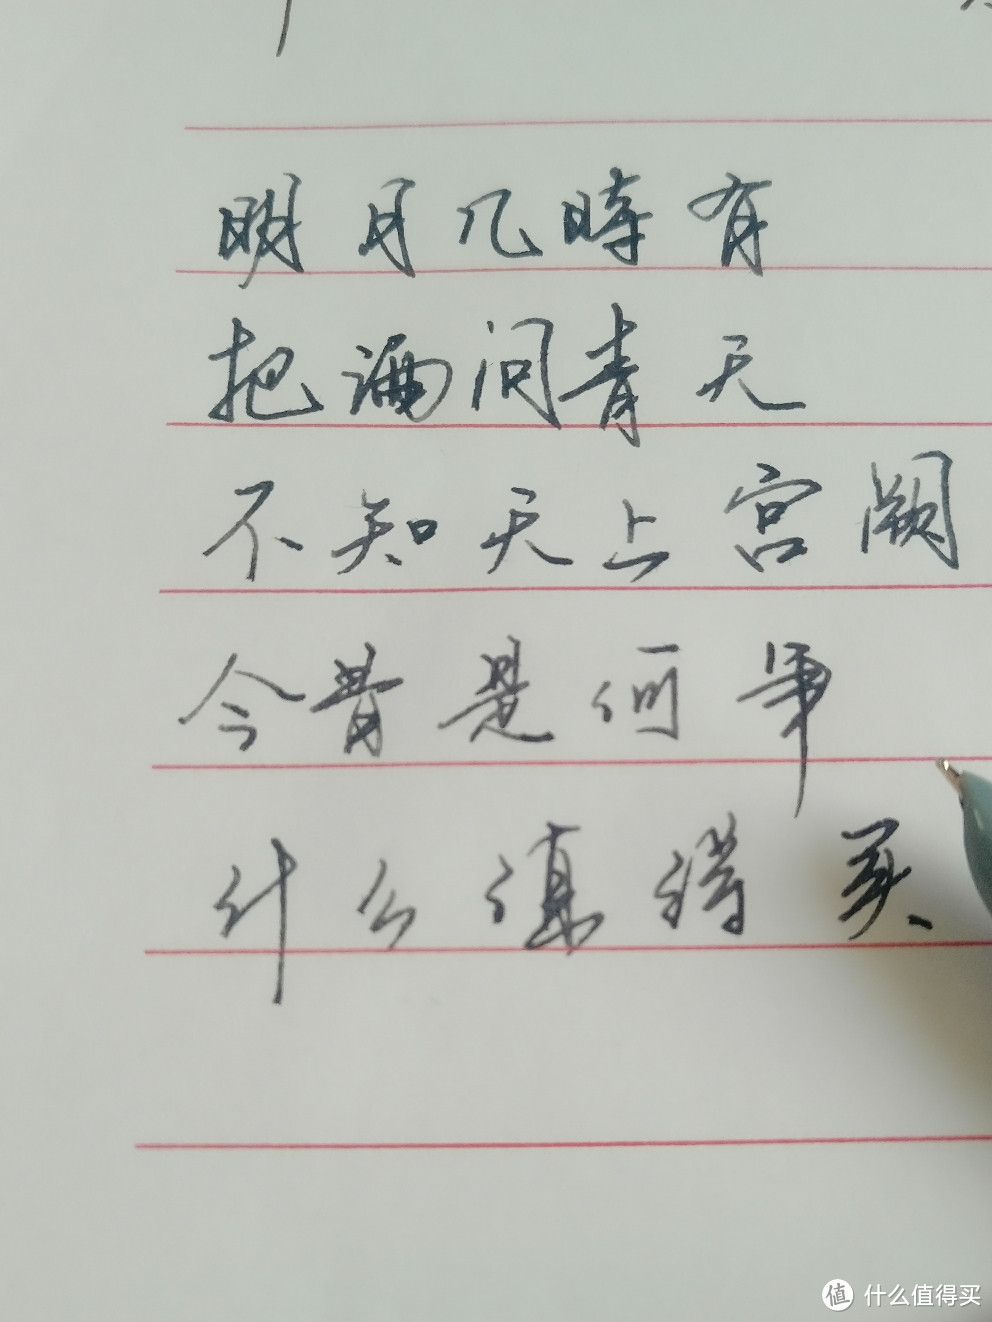 明月几時有
把酒问青天
不知天上宫阙
今昔是何年
什么值得买
值 什么值得买